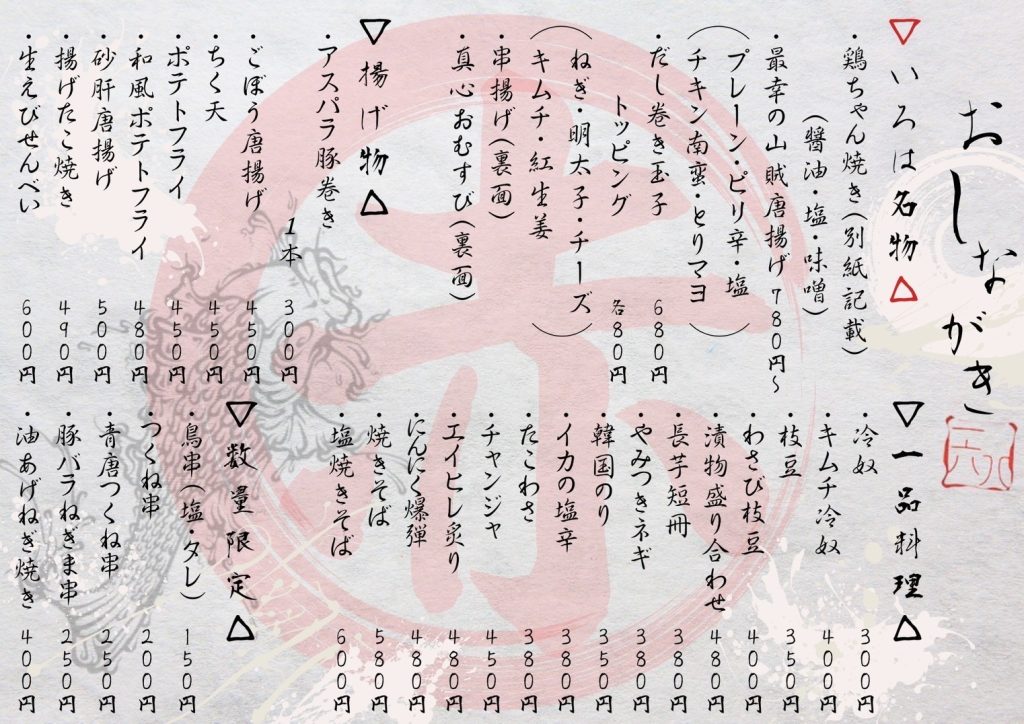 おしながき
▽いろは名物△
・鶏ちゃん焼き(別紙記載)
(醤油・塩・味噌)
・最幸の山賊唐揚げ 780円～
(プレーン・ピリ辛・塩
チキン南蛮・とりマヨ)
・だし巻き玉子 680円
トッピング 各80円
(ねぎ・明太子・チーズ
キムチ・紅生姜)
・串揚げ(裏面)
・真心おむすび(裏面)
▽揚げ物△
・アスパラ豚巻き
1本 300円
・ごぼう唐揚げ 450円
・ちく天 450円
・ポテトフライ 450円
・和風ポテトフライ 480円
・砂肝唐揚げ 500円
・揚げたこ焼き 490円
・生えびせんべい 600円
▽一品料理△
・冷奴 300円
・キムチ冷奴 400円
・枝豆 350円
・わさび枝豆 400円
・漬物盛り合わせ 480円
・長芋短冊 380円
・やみつきネギ 380円
・韓国のり 350円
・イカの塩辛 380円
・たこわさ 380円
・チャンジャ 450円
・エイヒレ炙り 480円
・にんにく爆弾 480円
・焼きそば 580円
・塩焼きそば 600円
▽数量限定△
・鳥串(塩・タレ) 150円
・つくね串 200円
・青唐つくね串 250円
・豚バラねぎま串 250円
・油あげねぎ焼き 400円